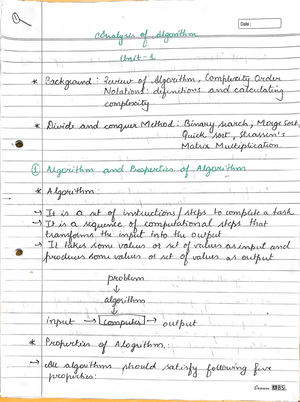 Date :
Analysis of Algorithm
Unit - 1
* Background : Review of Algorithm, Complexity Order
Notations: definitions and calculating
complexity
* Divide and conquer Method : Binary search, Merge Sort,
Quick sort, Strassen's
Matrix Multiplication
① Algorithm and Properties of Algorithm
* Algorithm :
→ It is a set of instructions / steps to complete a task
→ It is a sequence of computational steps that
transforms the input into the output
→ It takes some values or set of values as input and
produces some values or set of values as output
problem
↓
algorithm
↓
input → computer → output
* Properties of Algorithm :
→ All algorithms should satisfy following five
properties: